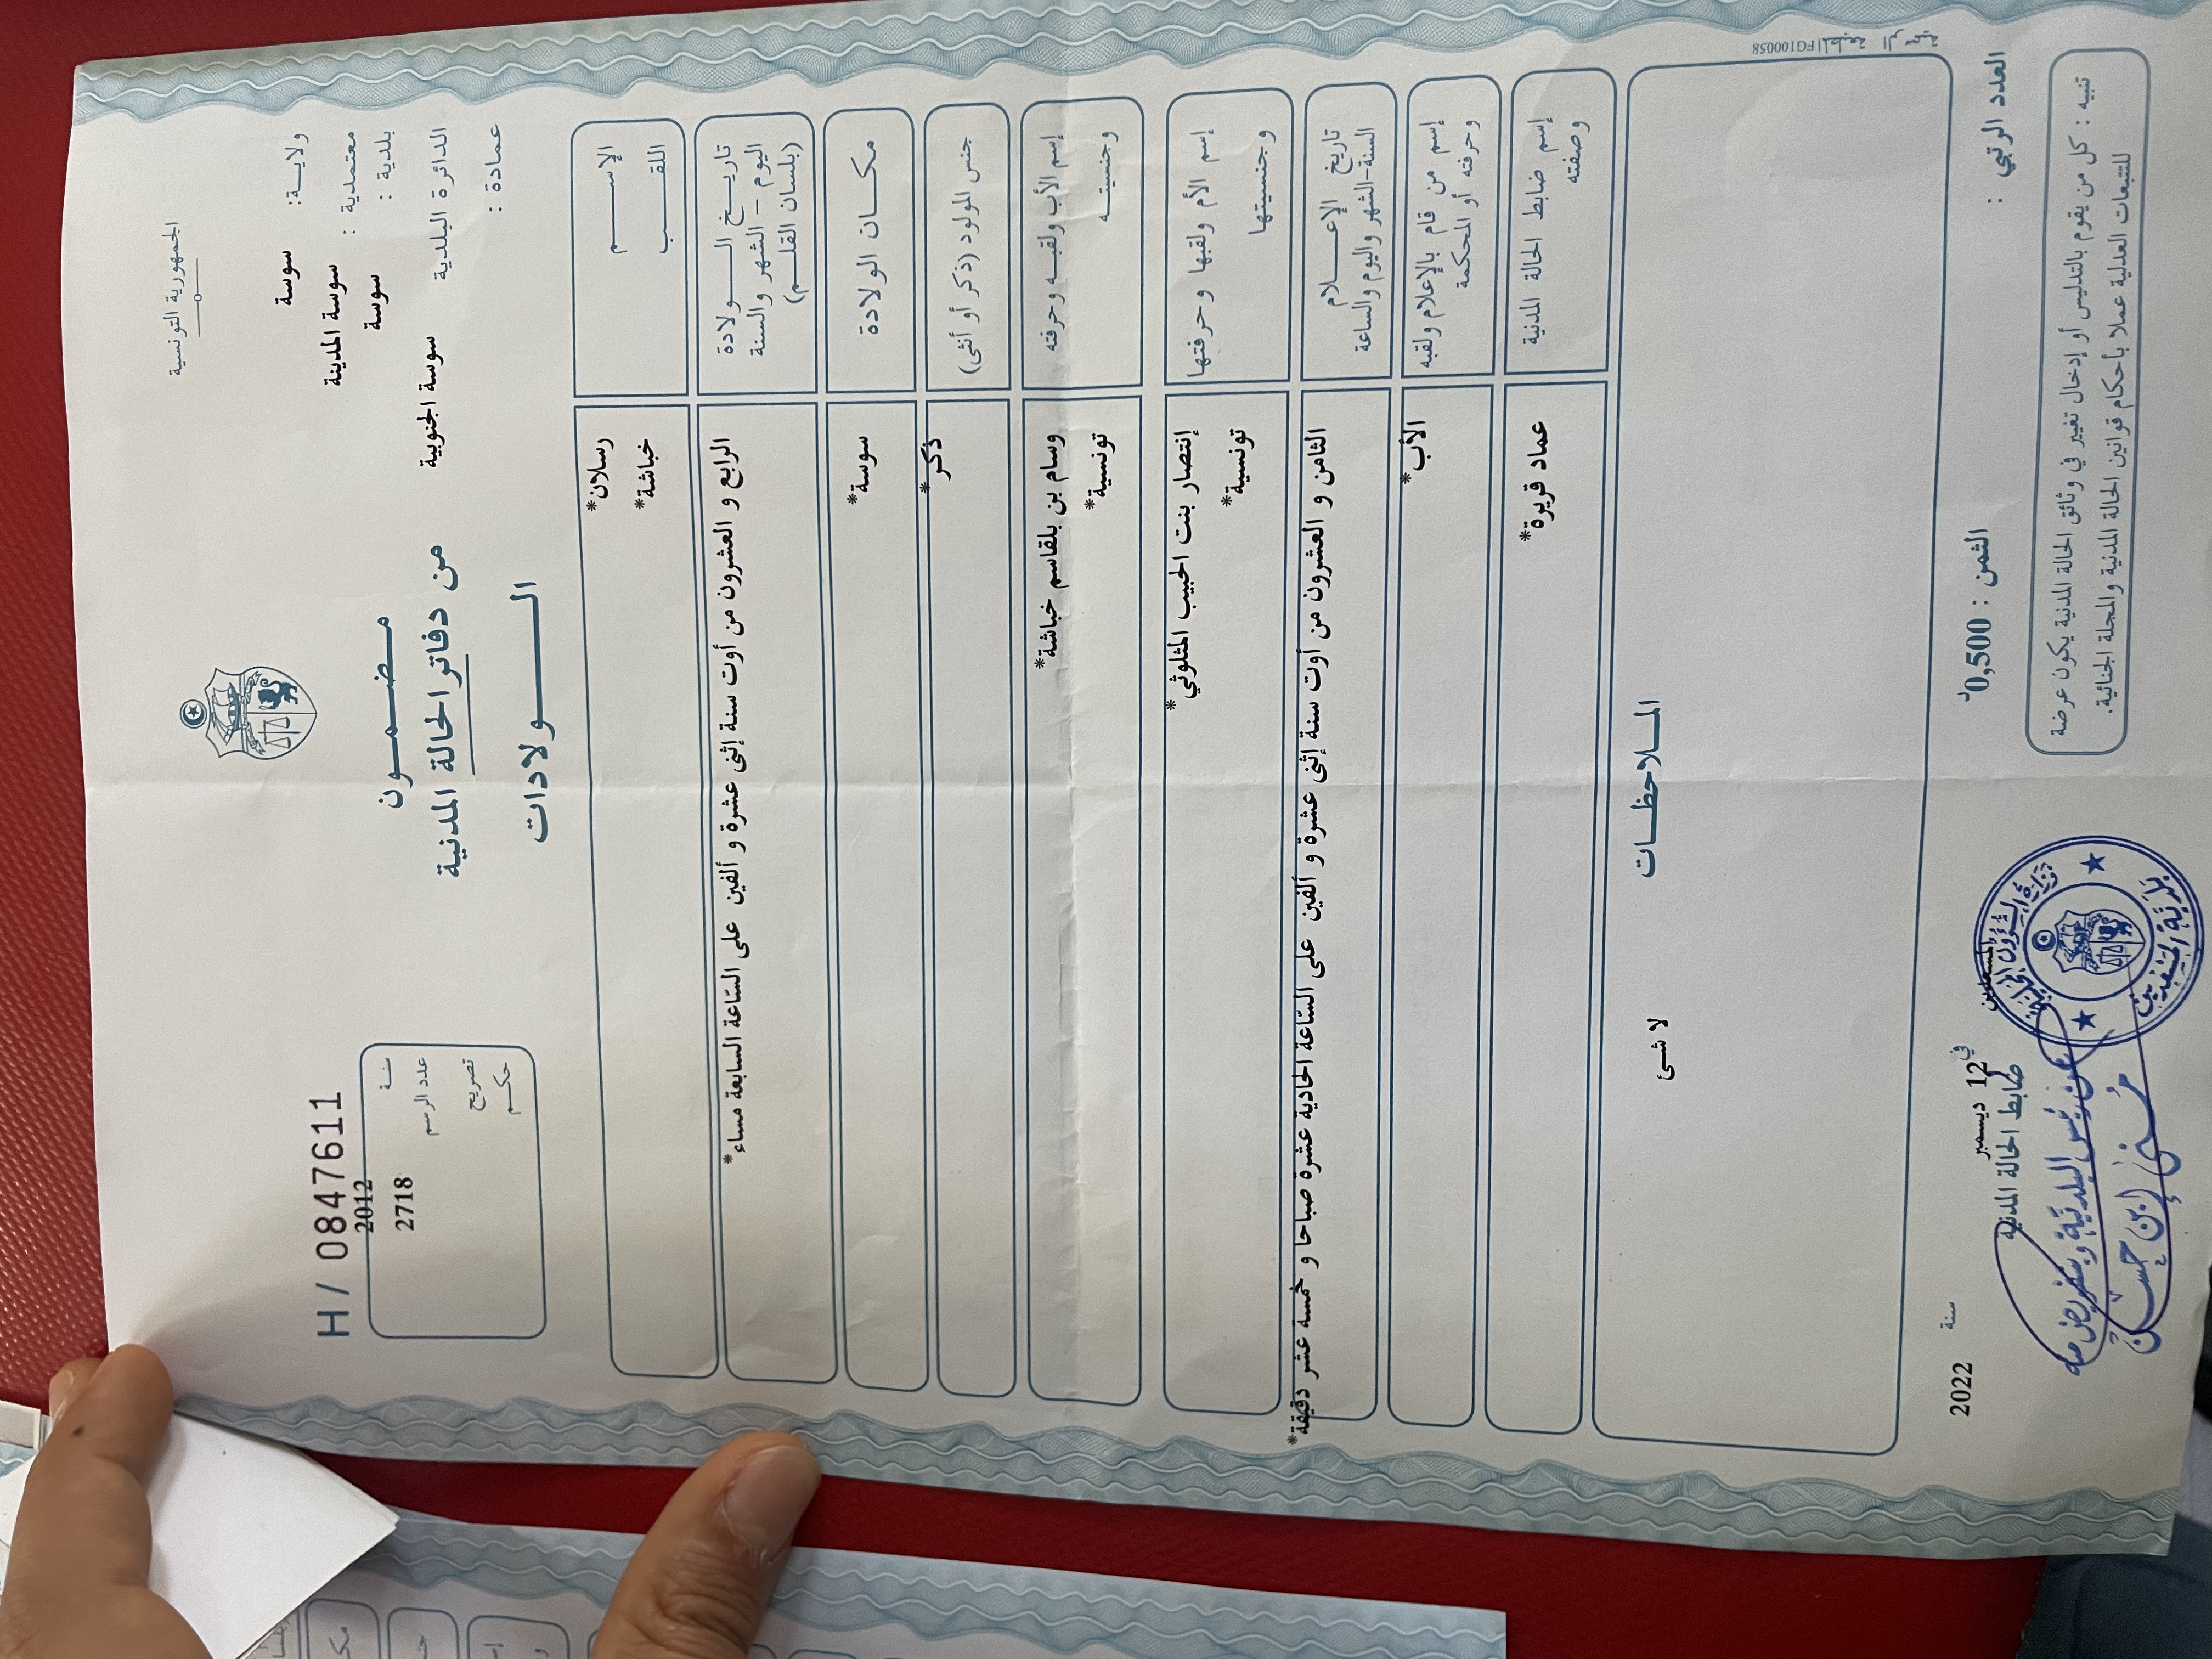 الجمهورية التونسية
ولاية: سوسة
معتمدية : سوسة المدينة
بلدية : سوسة
الدائرة البلدية سوسة الجنوبية
عمادة :
مضمون
من دفاتر الحالة المدنية
الولادات
H / 0847611
سنة 2012
عدد الرسم 2718
تصريح
حكم
الإسم رسلان*
اللقب خباشة*
تاريخ الولادة
اليوم - الشهر والسنة
(بلسان القلم)
الرابع و العشرون من أوت سنة إثنى عشرة و ألفين على السّاعة السابعة مساء*
مكان الولادة سوسة*
جنس المولود (ذكر أو أنثى) ذكر*
إسم الأب ولقبه وحرفته وسام بن بلقاسم خباشة*
وجنسيته تونسية*
إسم الأم ولقبها وحرفتها إنتصار بنت الحبيب المثلوثي*
وجنسيتها تونسية*
تاريخ الإعلام
السنة-الشهر واليوم والساعة
الثامن و العشرون من أوت سنة إثنى عشرة و ألفين على السّاعة الحادية عشرة صباحا و خمسة عشر دقيقة*
إسم من قام بالإعلام ولقبه
وحرفته أو المحكمة
الأب*
إسم ضابط الحالة المدنية
وصفته
عماد قريرة*
الملاحظات
لا شئ
المطبعة الرسمية FG100058
العدد الرتبي :
الثمن : 0,500د
تنبيه : كل من يقوم بالتدليس أو إدخال تغيير في وثائق الحالة المدنية يكون عرضة
للتتبعات العدلية عملا بأحكام قوانين الحالة المدنية والمجلة الجنائية.
في 12 ديسمبر سنة 2022
ضابط الحالة المدنية
عن رئيس البلدية وبتفويض منه